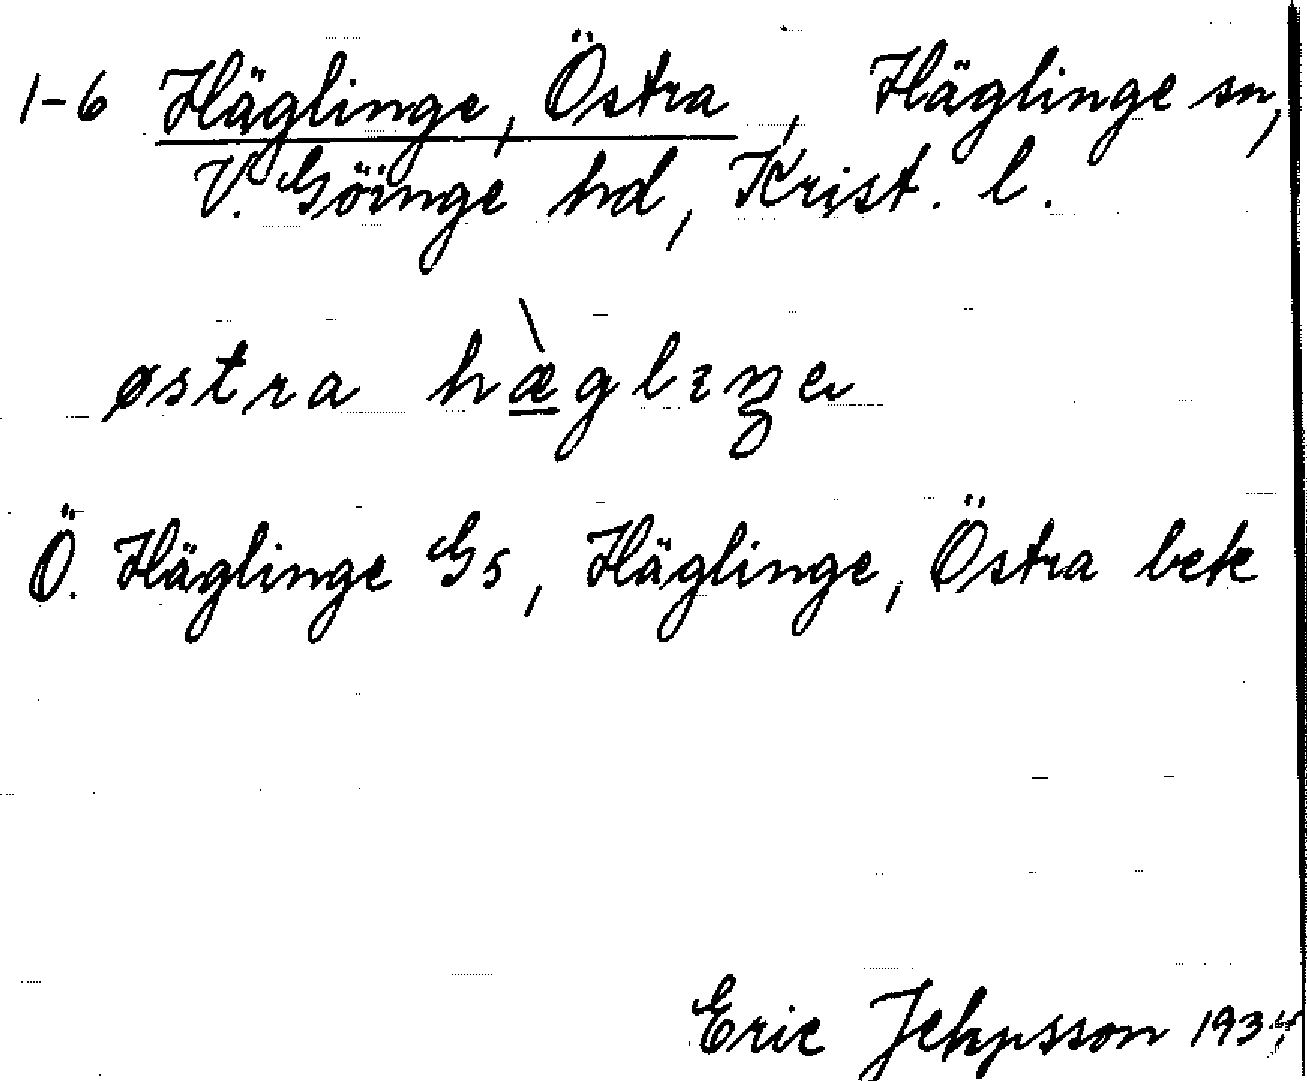 1-6 Häglinge, Östra, Häglinge sn,
V. Göinge hd, Krist. l.
østra hæ̀glıŋe
Ö. Häglinge Gs, Häglinge, Östra bek
Eric Jehpsson 1934